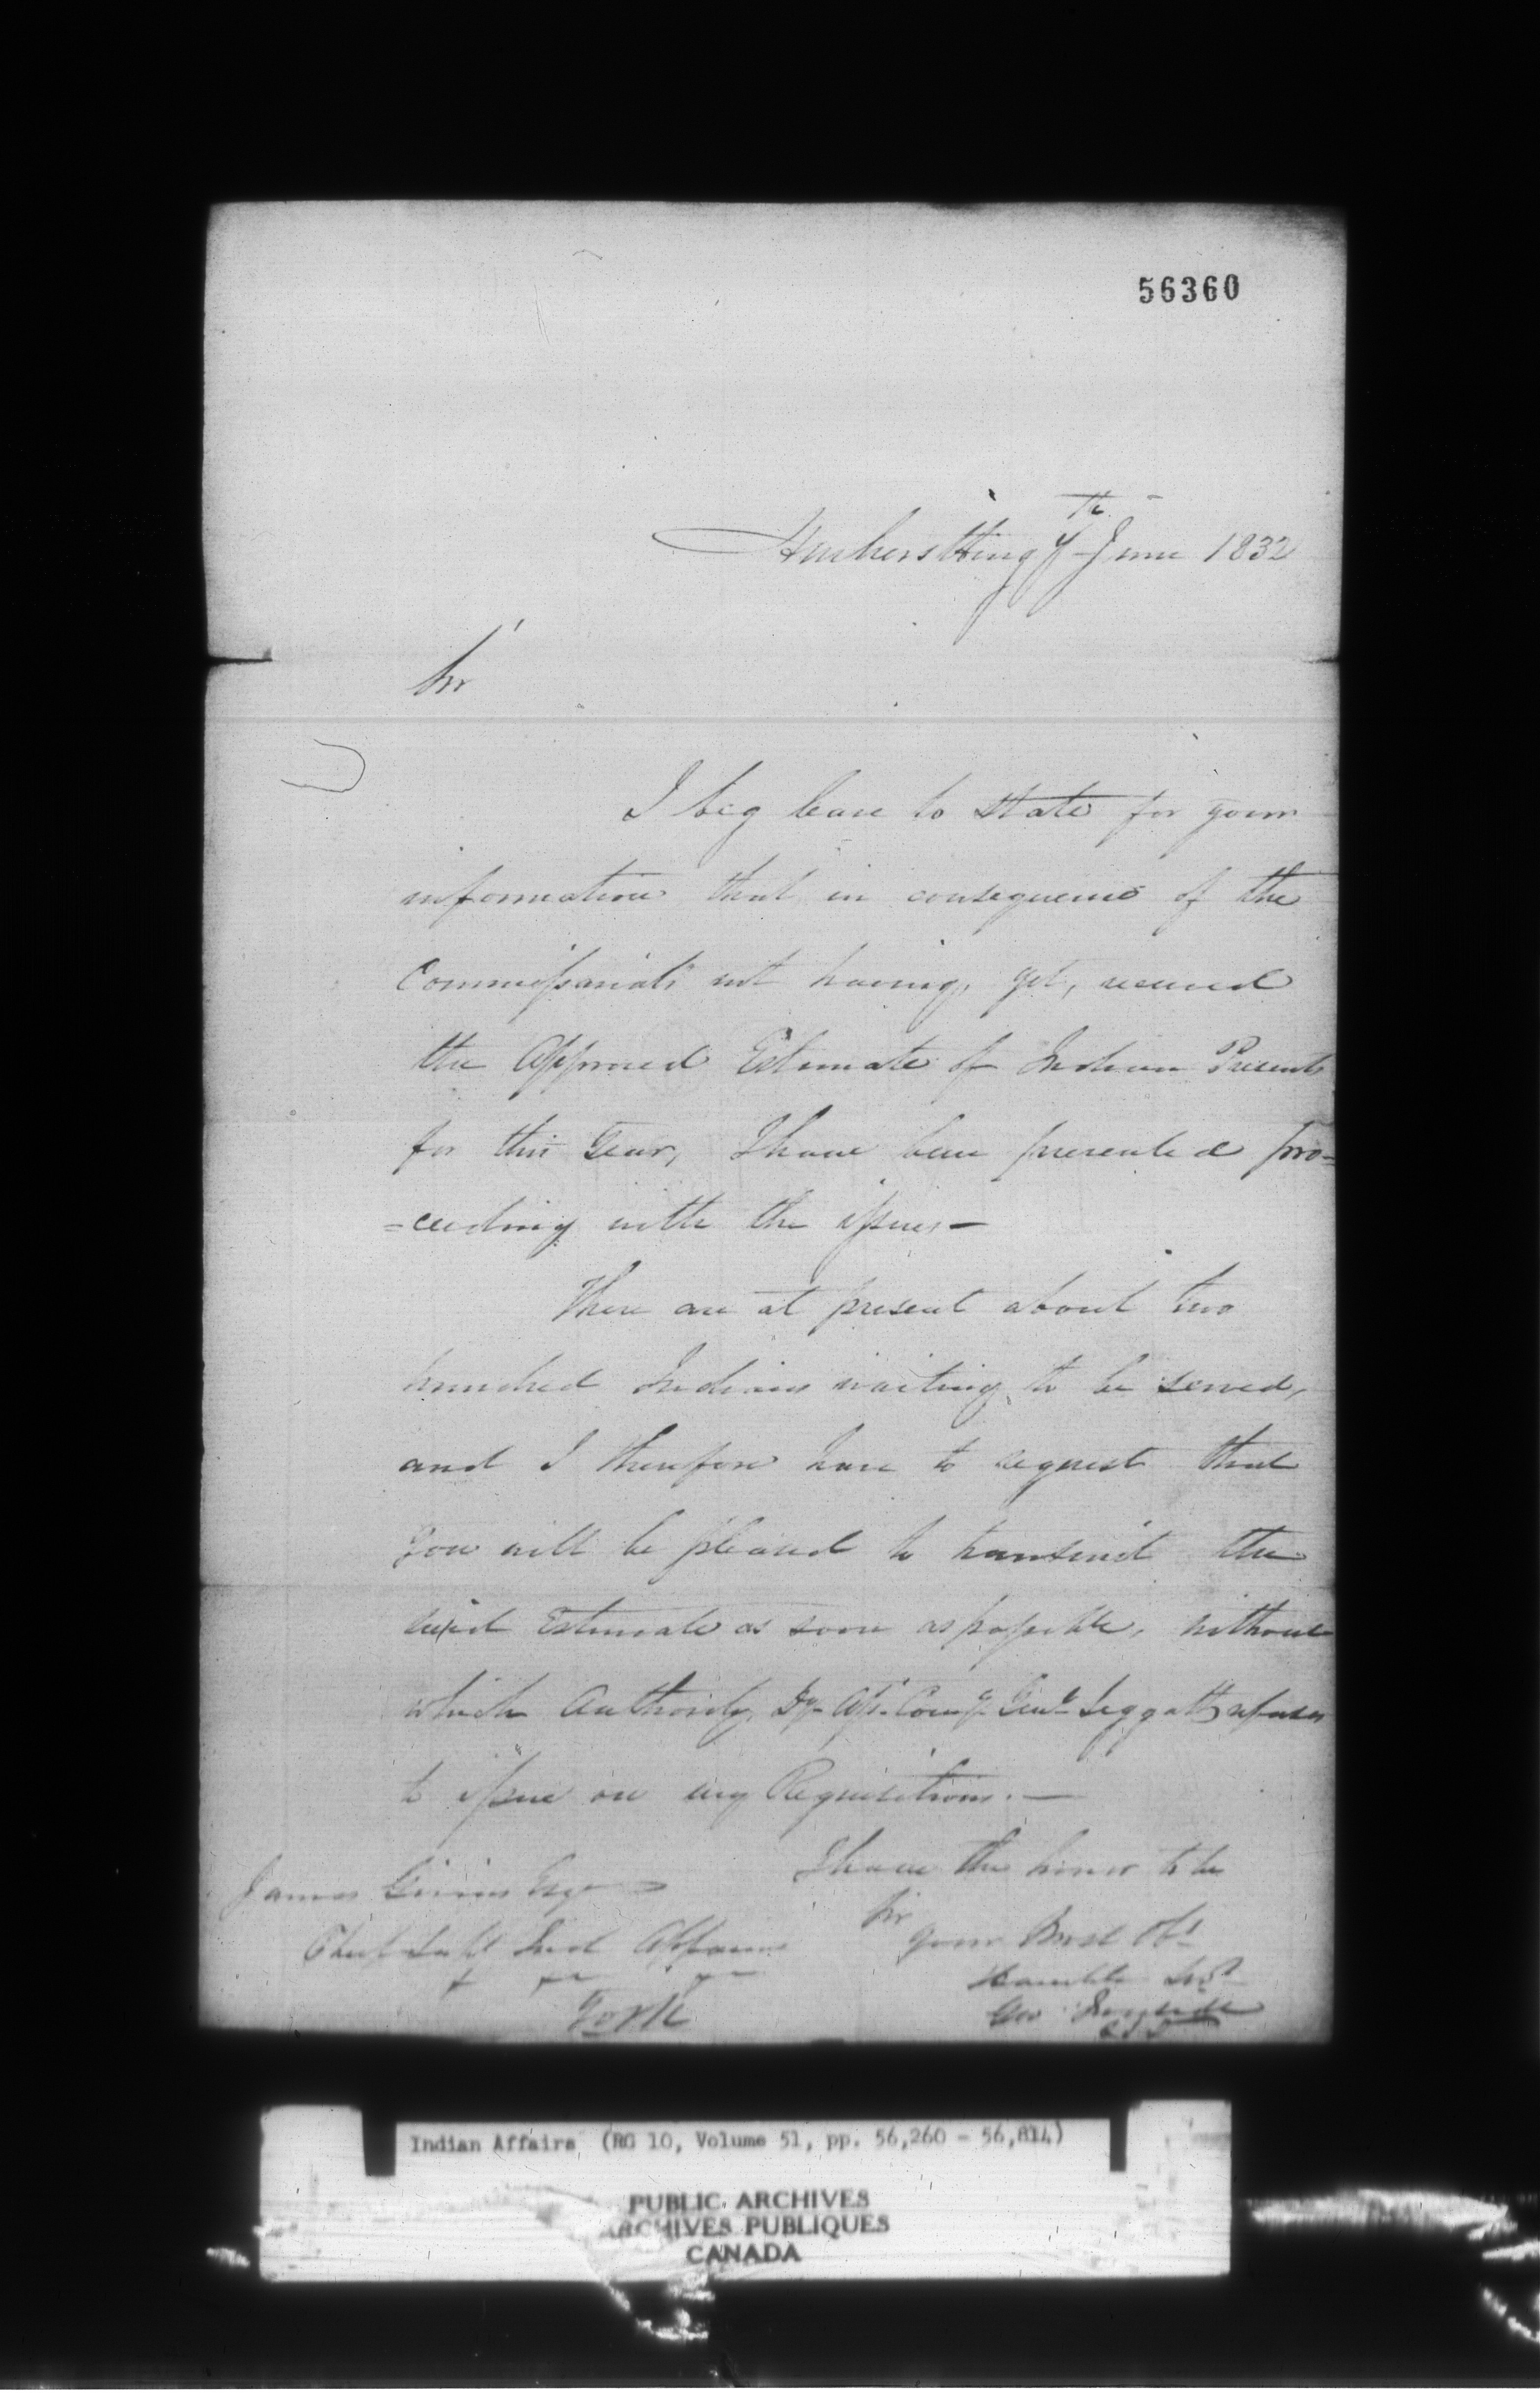 56360
Amherstburg 7th June 1832
Sir
I beg leave to state for your
information that in consequence of the
Commissariat's not having, yet, received
the Approved Estimate of Indian Presents
for this Year, I have been prevented pro-
=ceeding with the issues —
There are at present about two
hundred Indians waiting to be served,
and I therefore have to request that
you will be pleased to transmit the
said Estimate as soon as possible, without
which Authority, Dy. Asst. Comy. Genl. Leggatt refuses
to issue on my Requisitions. —
I have the honor to be
Sir
your Most Obt
Humble Svt
Geo Ironside
James Givins Esqr
Chief Supt Ind Affairs
York
Indian Affairs (RG 10, Volume 51, pp. 56,260 - 56,814)
PUBLIC ARCHIVES
ARCHIVES PUBLIQUES
CANADA